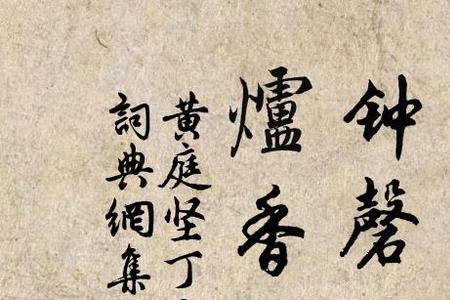 钟磬
爐香
黄庭坚丁
詞典網集